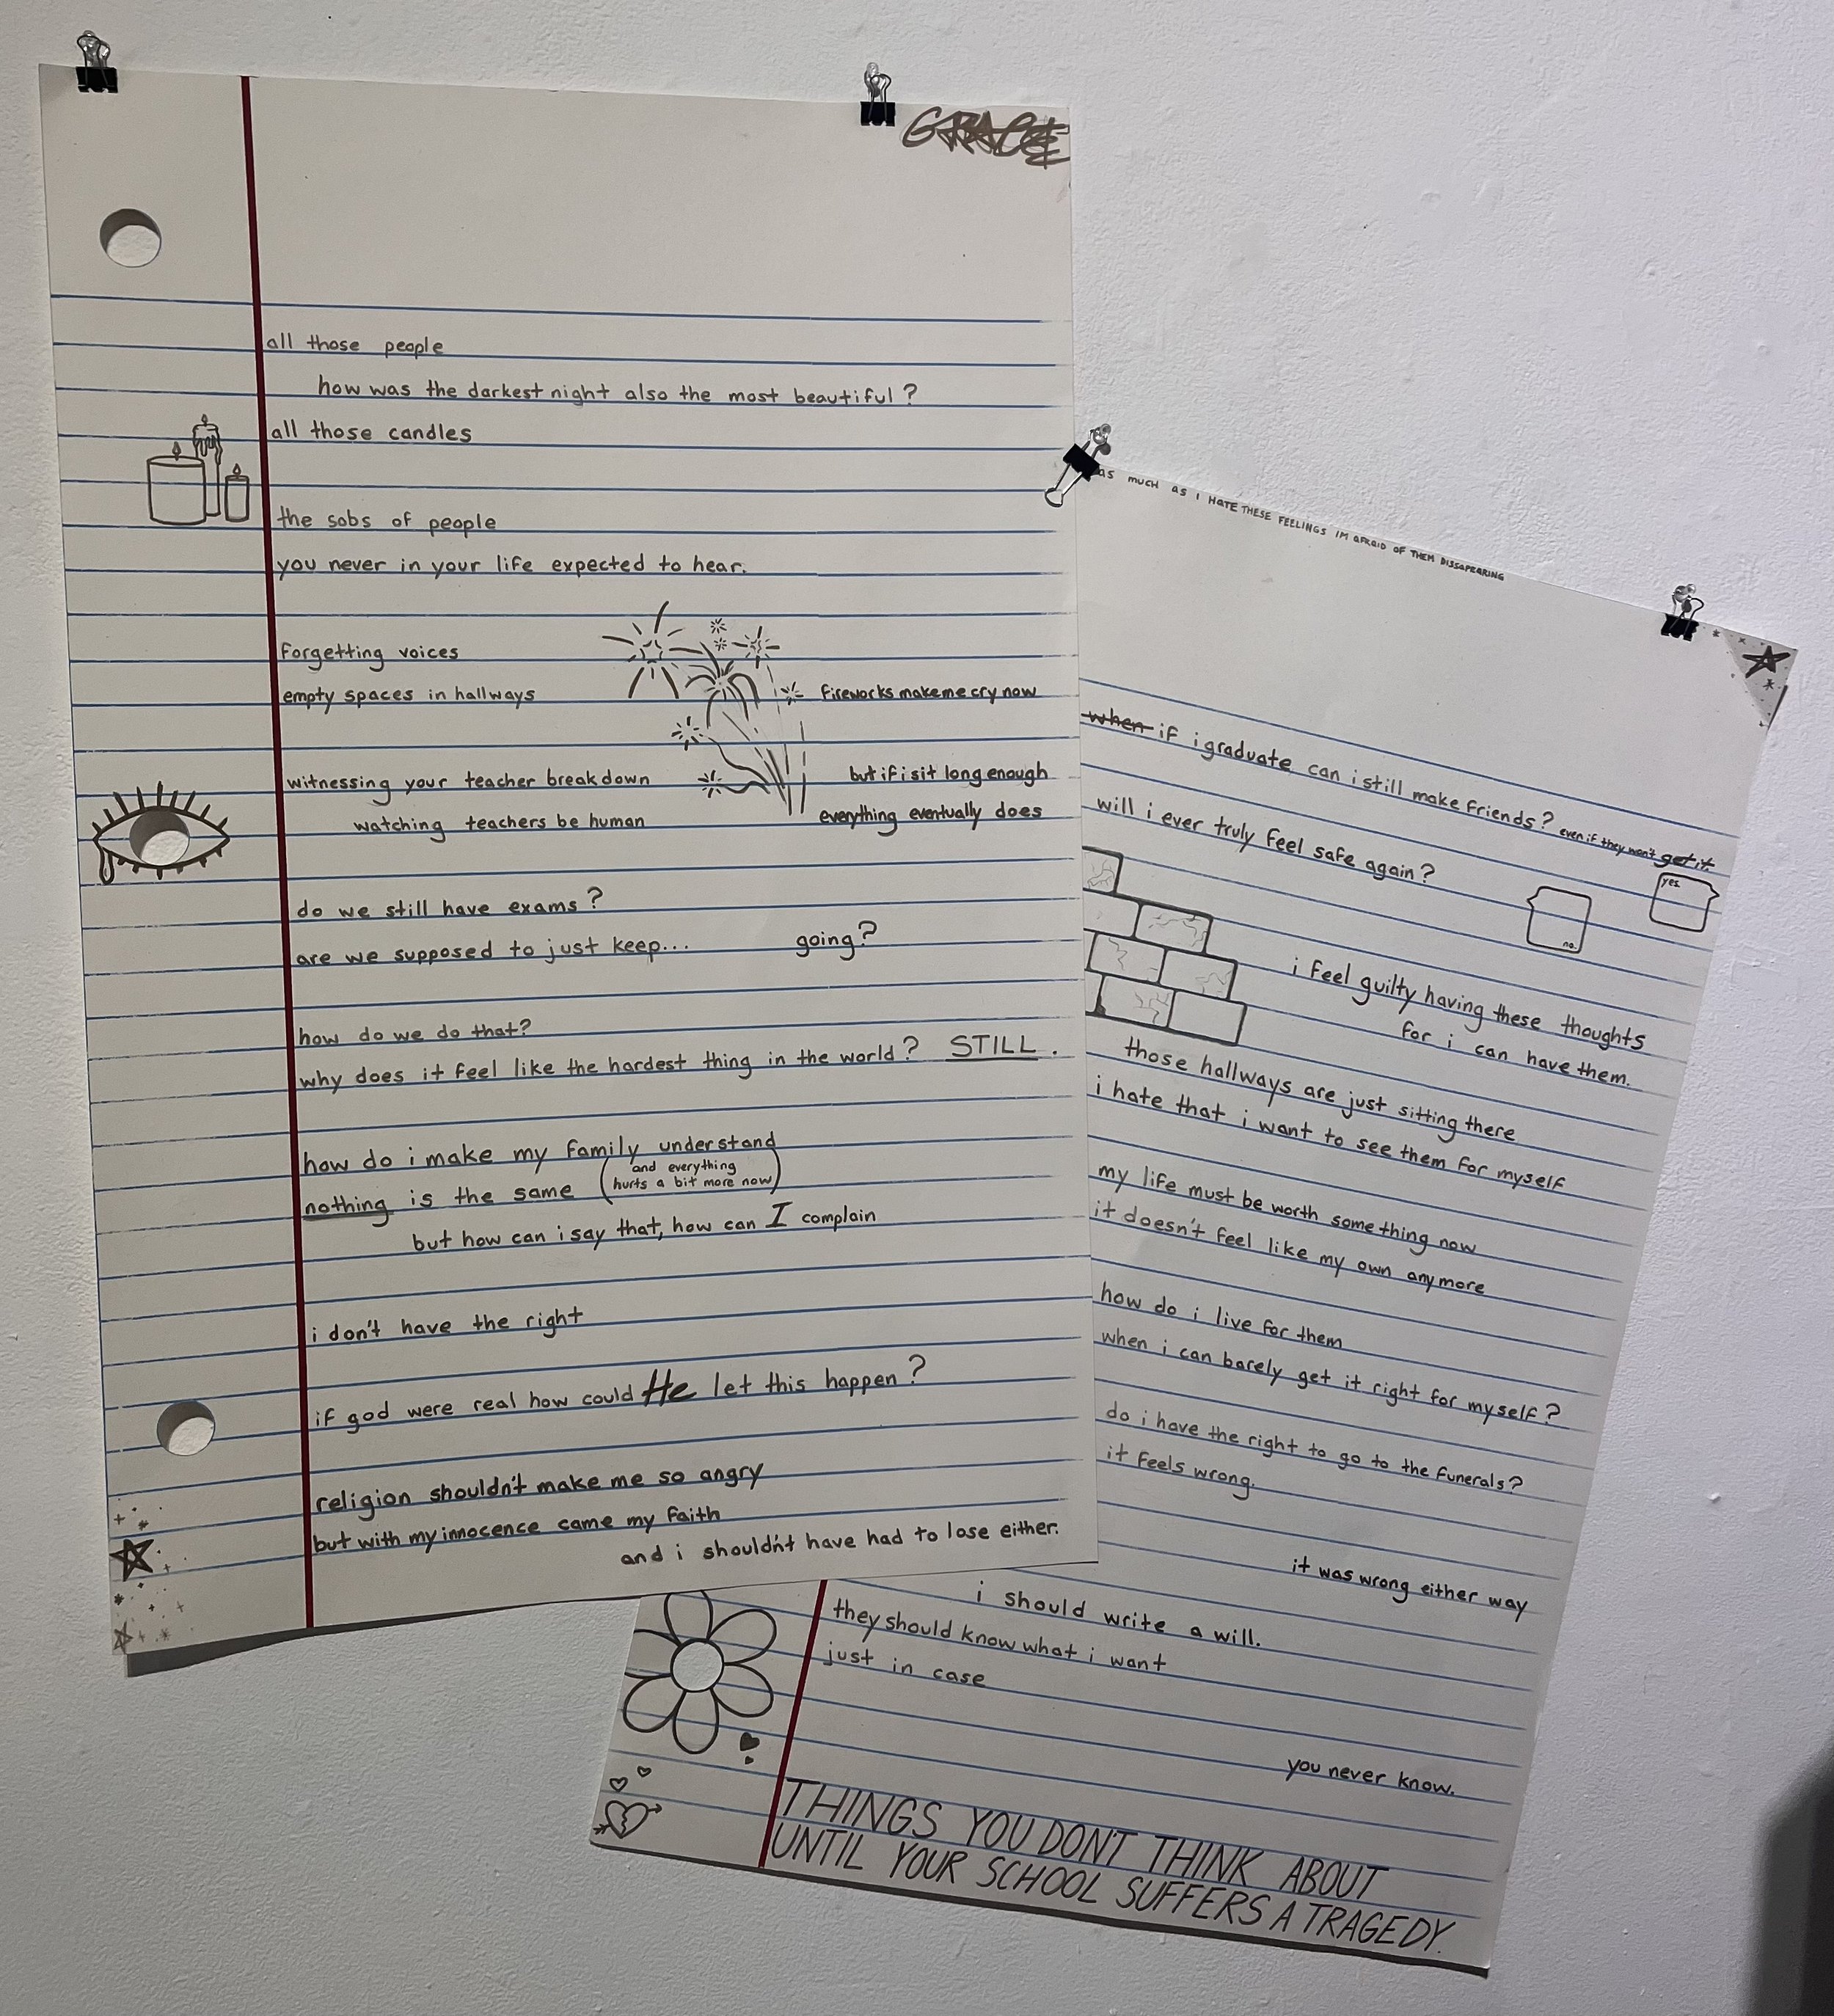 GRACE
all those people
how was the darkest night also the most beautiful?
all those candles
the sobs of people
you never in your life expected to hear.
forgetting voices
empty spaces in hallways
fireworks make me cry now
witnessing your teacher break down
but if i sit long enough
watching teachers be human
everything eventually does
do we still have exams?
are we supposed to just keep... going?
how do we do that?
why does it feel like the hardest thing in the world? STILL.
how do i make my family understand
nothing is the same (and everything
hurts a bit more now)
but how can i say that, how can I complain
i don't have the right
if god were real how could He let this happen?
religion shouldn't make me so angry
but with my innocence came my faith
and i shouldn't have had to lose either.
AS MUCH AS I HATE THESE FEELINGS IM AFRAID OF THEM DISSAPEARING
when if i graduate can i still make friends? even if they won't get it.
will i ever truly feel safe again?
yes.
no.
i feel guilty having these thoughts
for i can have them.
those hallways are just sitting there
i hate that i want to see them for myself
my life must be worth something now
it doesn't feel like my own anymore
how do i live for them
when i can barely get it right for myself?
do i have the right to go to the funerals?
it feels wrong.
it was wrong either way
i should write a will.
they should know what i want
just in case
you never know.
THINGS YOU DON'T THINK ABOUT
UNTIL YOUR SCHOOL SUFFERS A TRAGEDY.